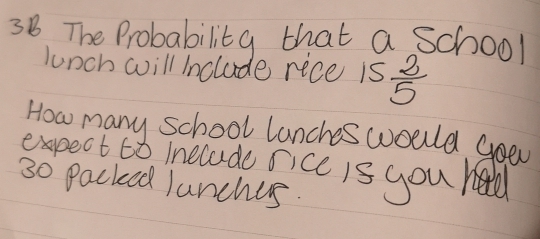 3B The Probability that a School
lunch will Include rice is 2/5
How many School lunches would you
expect to Include rice is you had
30 packed lunches.